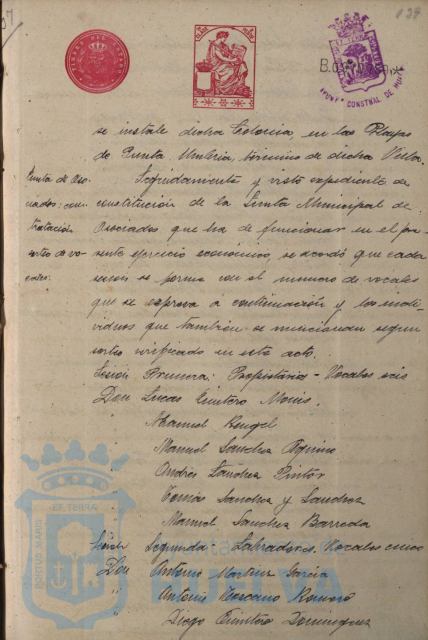 139
se instale dicha Colonia, en las Playas
de Punta Umbria, término de dicha Villa.
Junta de Aso-
ciados: cons-
titución
sorteo de vo-
cales:
Seguidamente y visto expediente de
constitución de la Junta Municipal de
Asociados que ha de funcionar en el pre-
sente ejercicio económico, se acordó que cada
sección se forme con el numero de vocales
que se expresa a continuación y los indi-
viduos que tambien se mencionan segun
sorteo verificado en este acto.
Sesión Primera: Propietarios - Vocales seis
Don Lucas Quintero Moris.
" Manuel Rengel
" Manuel Sanchez Aquino
" Andrés Sanchez Pintor
" Tomás Sanchez y Sanchez
" Manuel Sanchez Barreda
Sesión Segunda Labradores. Vocales cinco
Don Antonio Martin Garcia
" Antonio Toscano Romero
" Diego Quintero Dominguez
PORTUS MARIS ET TERRAE
HUELVA